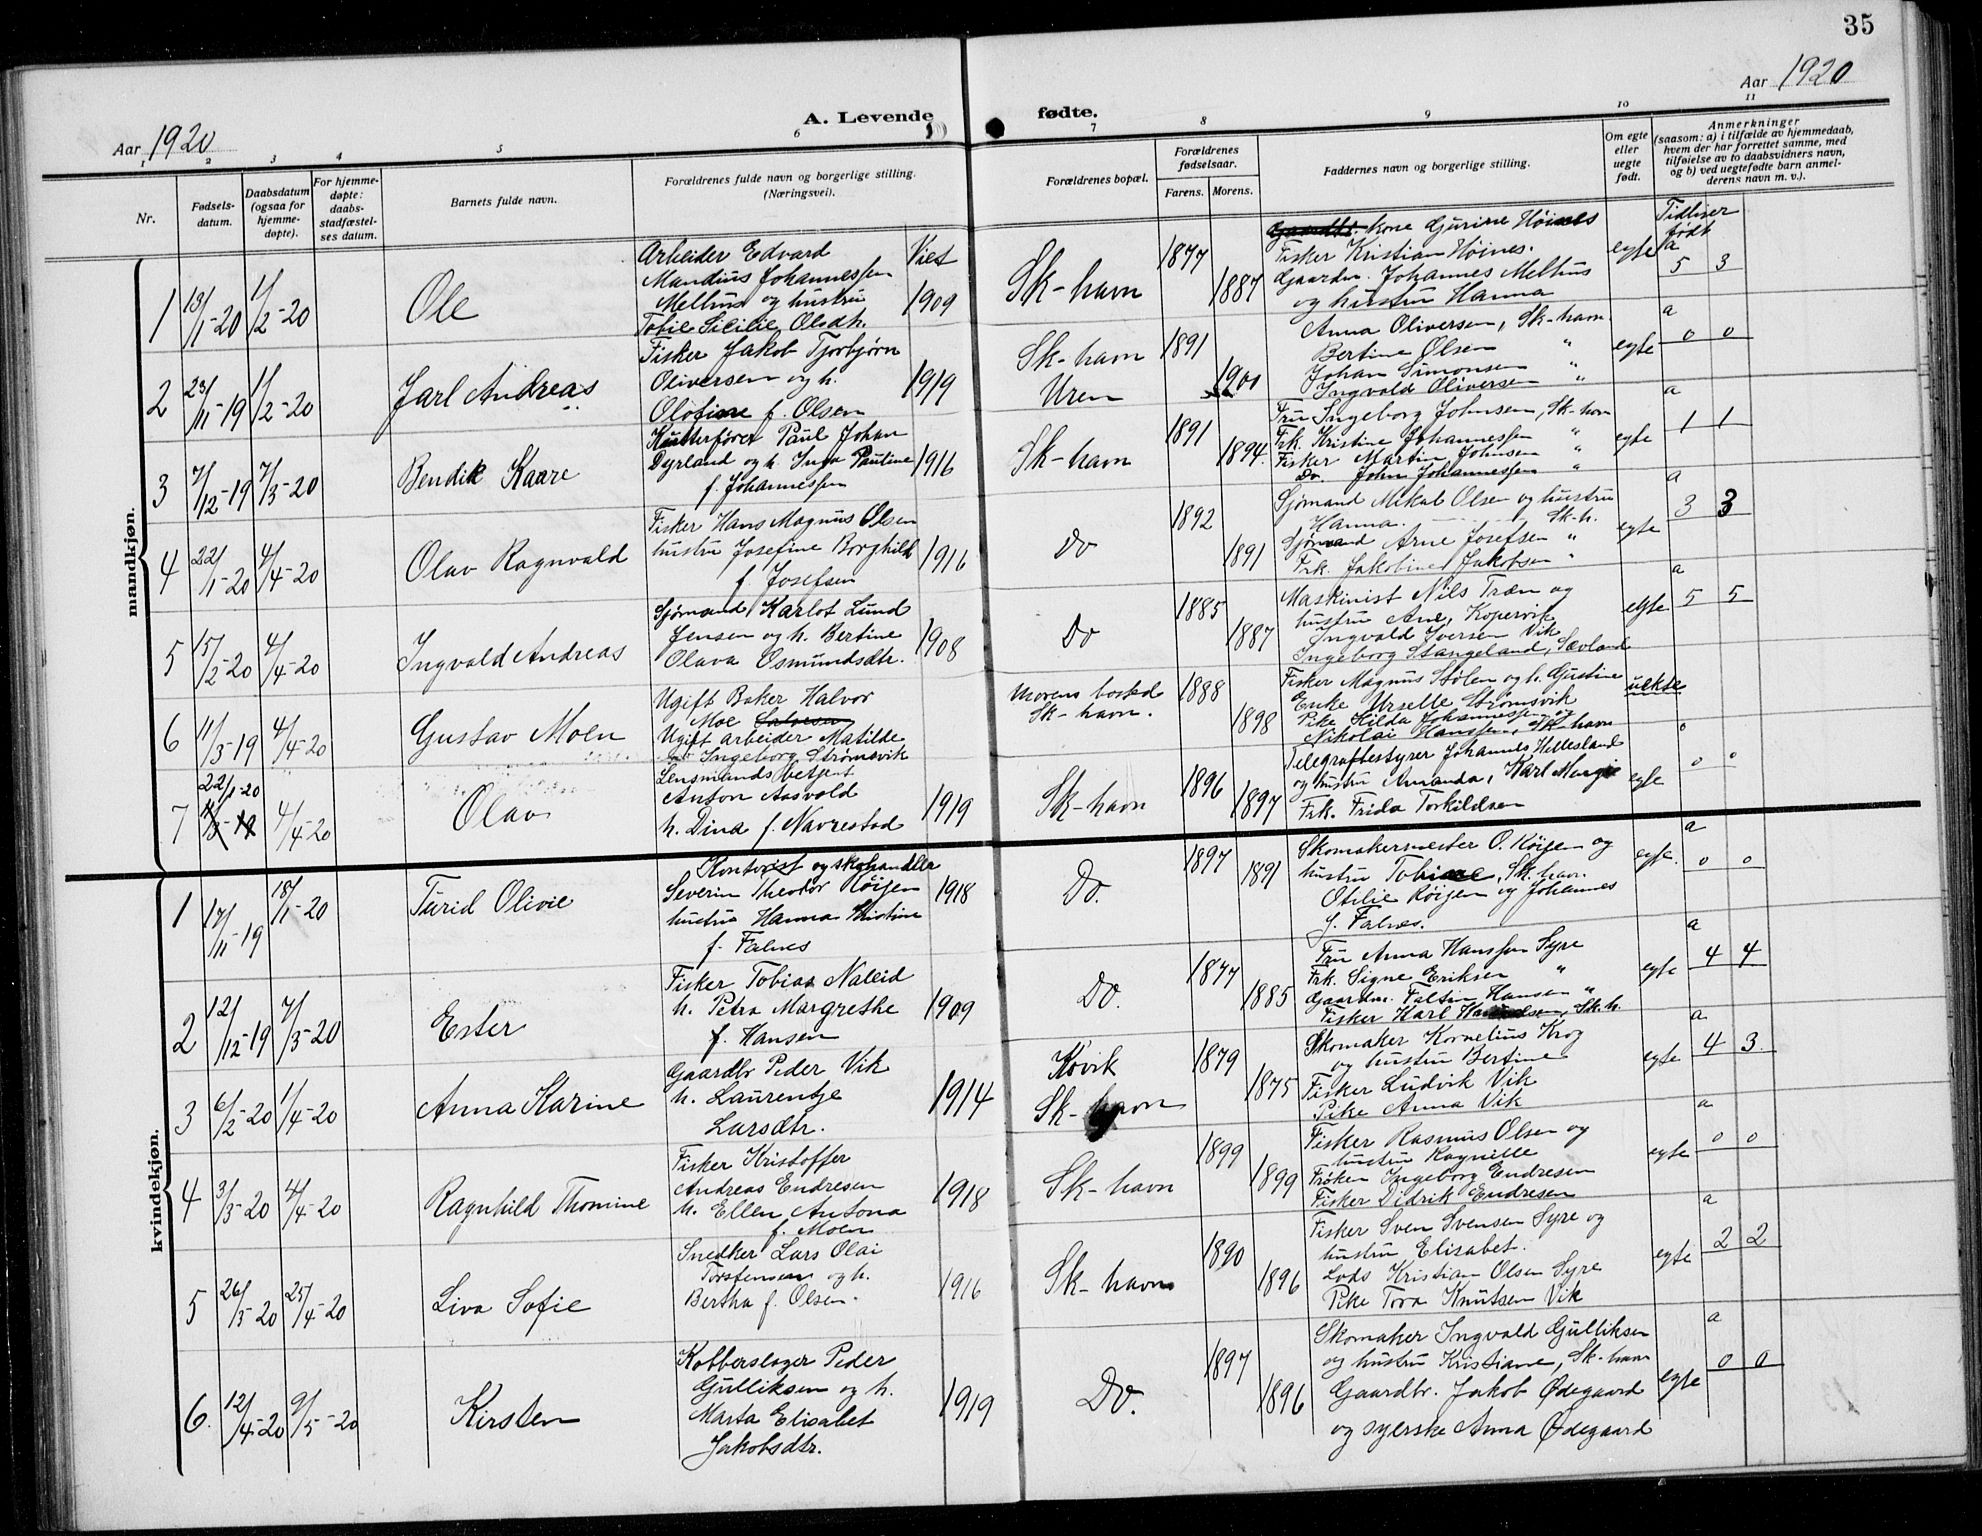 35
Aar 1920
A. Levende fødte.
Aar 1920
1 2 3 4 5 6 7 8 9 10 11
Nr.
Fødsels-
datum.
Daabsdatum
(ogsaa for
hjemme-
døpte).
For hjemme-
døpte:
daabs-
stadfæstel-
ses datum.
Barnets fulde navn.
Forældrenes fulde navn og borgerlige stilling.
(Næringsvei).
Forældrenes bopæl.
Forældrenes
fødselsaar.
Farens. Morens.
Faddernes navn og borgerlige stilling.
Om egte
eller
uegte
født.
Anmerkninger
(saasom: a) i tilfælde av hjemmedaab,
hvem der har forrettet samme, med
tilføielse av to daabsvidners navn,
og b) ved uegtefødte barn anmel-
derens navn m. v.).
Viet
Tidliger
født
mandkjøn.
1 13/1-20 1/2-20 Ole
Arbeider Edvard
Mandius Johannessen
Melhus og hustru
Tobie Sicilie Olsdtr.
1909 Sk-havn 1877 1887
Gaardbr. kone Gurine Høines
Fisker Kristian Høines.
Gaardm. Johannes Melhus
og hustru Hanna
egte a 5 3
2 23/11-19 1/2-20 Jarl Andreas
Fisker Jakob Tjorbjørn
Oliversen og h.
Olofine f. Olsen
1919 Sk-havn
Uren
1891 1900
Anna Oliversen, Sk-havn
Bertine Olsen "
Johan Simonsen "
Ingvald Oliversen "
egte a 0 0
3 7/12-19 7/3-20 Bendik Kaare
Kutterfører Paul Johan
Dyrland og h. Inga Pauline
f. Johannessen
1916 Sk-havn 1891 1894.
Fru Ingeborg Johnsen, Sk-havn
Frk. Kristine Johannessen "
Fisker Martin Johnsen "
Do. John Johannessen "
egte a 1 1
4 22/1-20 4/4-20 Olav Ragnvald
Fisker Hans Magnus Olsen
hustru Josefine Borghild
f. Josefsen
1916 Do 1892 1891
Sjømand Mikal Olsen og hustru
Hanna. Sk-h.
Sjømand Arne Josefsen "
Frk. Jakobine Jakobsen "
egte a 3 3
5 15/2-20 4/4-20 Ingvald Andreas
Sjømand Karlot Lund
Jensen og h. Bertine
Olava Osmundsdtr.
1908 Do 1885 1887
Maskinist Nils Træn og
hustru Ane, Kopervik
Ingvald Iversen Vik
Ingeborg Stangeland, Sævland
egte a 5 5
6 11/3-19 4/4-20 Gustav Moen
Ugift Baker Halvor
Moe
Ugift arbeider Matilde
Ingeborg Strømsvik
Morens bosted
Sk-havn.
1888 1898
Fisker Magnus Stølen og h. Gustine
Enke Urselle Strømsvik
Pike Hilda Johannessen og
Nikolai Hanssen, Sk-havn
uekte
7 22/1-20 4/4-20 Olav
Lensmandsbetjent
Anton Aasvold
h. Dina f. Navrestad
1919 Sk-havn 1896 1897
Telegrafbestyrer Johannes Hillesland
og hustru Amanda, Karl
Frk. Frida Torkildsen
egte 0 0
kvindekjøn.
1 17/11-19 18/1-20 Turid Olivie
Kontorist og skohandler
Severin Theodor Røisen
hustru Hanna Kristine
f. Falnes
1918 Do. 1897 1891
Skomakermester O. Røisen og
hustru Tobine, Sk.havn.
Otilie Røisen og Johannes
J. Falnes.
egte. a 0 0
2 12/12-19 7/3-20 Ester
Fisker Tobias Naleid
h. Petra Margrethe
f. Hansen
1909 Do. 1877 1885
Fru Anna Hanssen Syre
Frk. Signe Eriksen "
Gaardm. Faltin Hansen "
Fisker Karl Sk.h.
egte a 4 4
3 6/2-20 1/4-20 Anna Karine
Gaardbr Peder Vik
h. Laurentse
Larsdtr.
1914 Kovik
Sk-havn
1879 1875
Skomaker Kornelius Krog
og hustru Bertine
Fisker Ludvik Vik
Pike Anna Vik
egte a 4 3.
4 3/3-20 4/4-20 Ragnhild Thomine
Fisker Kristoffer
Andreas Endresen
h. Ellen Antona
f. Moen
1918 Sk-havn 1899 1899
Fisker Rasmus Olsen og
hustru Ragnille
Frøken Ingeborg Endresen
Fisker Didrik Endresen
egte a 0 0
5 26/3-20 25/4-20 Liva Sofie
Snedker Lars Olai
Torstensen og h.
Bertha f. Olsen.
1916 Sk-havn 1890 1896
Fisker Sven Svensen Syre og
hustru Elisabet.
Lods Kristian Olsen Syre
Pike Tora Knutsen Vik
egte a 2 2
6. 12/4-20 9/5-20 Kirsten
Kobberslager Peder
Gulliksen og h.
Marta Elisabet
Jakobsdtr.
1919 Do. 1897 1896
Skomaker Ingvald Gulliksen
og hustru Kristiane, Sk-havn
Gaardbr. Jakob Ødegaard
og syerske Anna Ødegaard
egte a 0 0